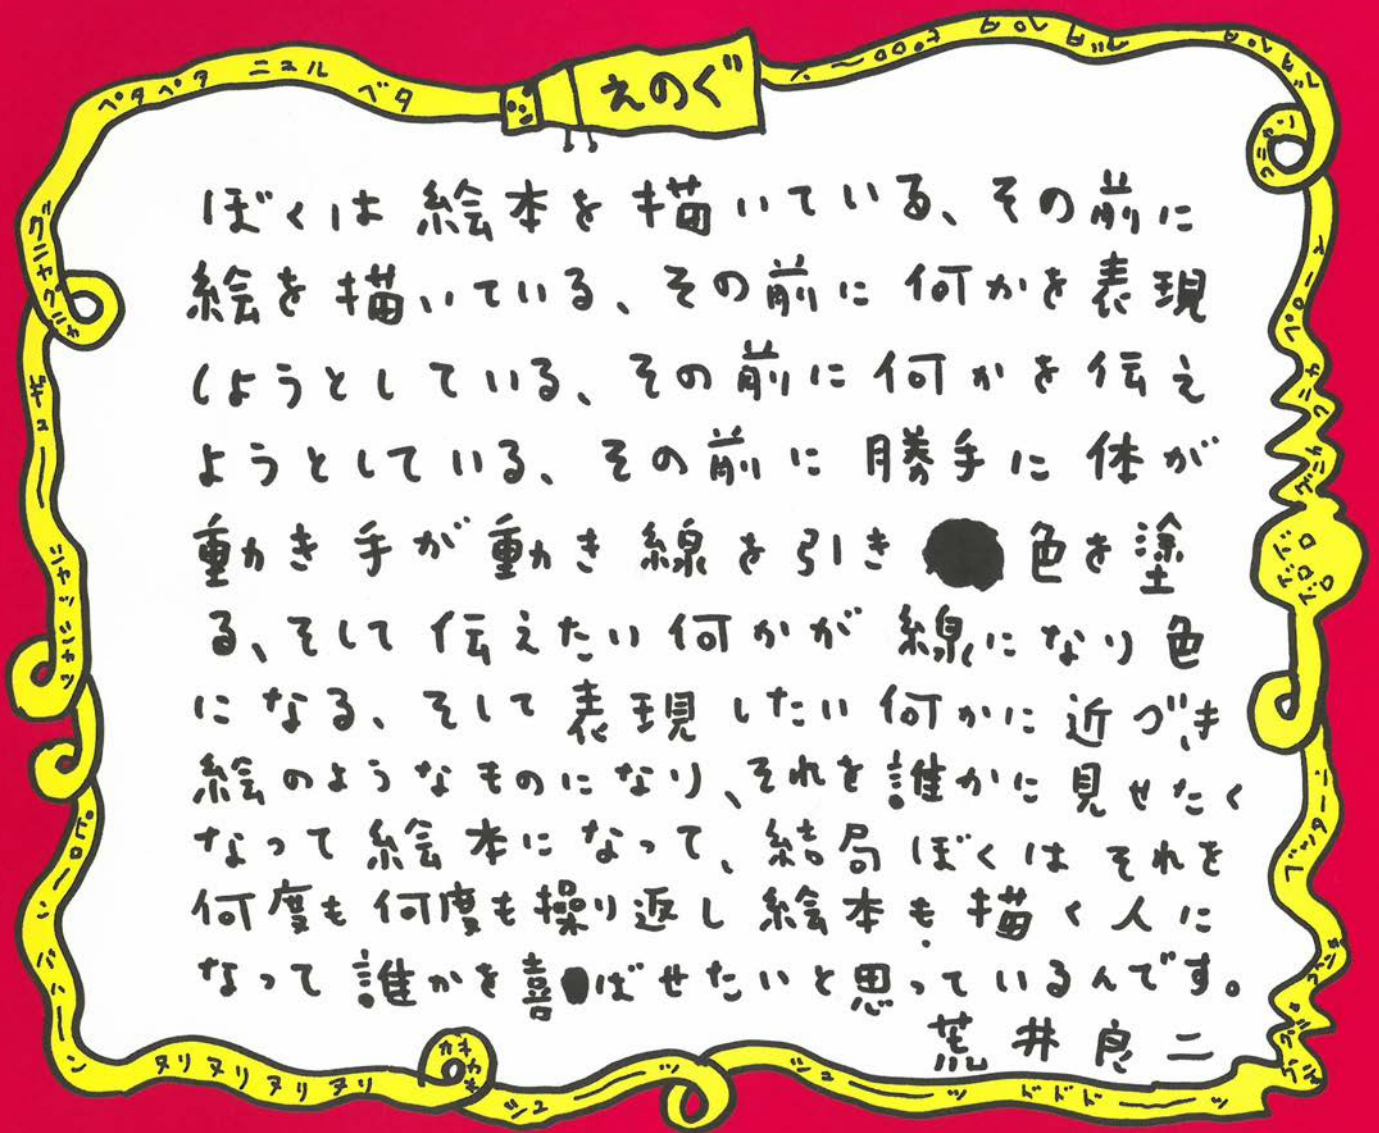 えのぐ
ペタペタ ニュル ベタ
ぼくは絵本を描いている、その前に
絵を描いている、その前に何かを表現
しようとしている、その前に何かを伝え
ようとしている、その前に勝手に体が
動き手が動き線を引き 色を塗
る、そして伝えたい何かが線になり色
になる、そして表現したい何かに近づき
絵のようなものになり、それを誰かに見せたく
なって絵本になって、結局ぼくはそれを
何度も何度も操り返し絵本も描く人に
なって誰かを喜ばせたいと思っているんです。
荒井良二
ヌリヌリヌリヌリ
ドドドーッ